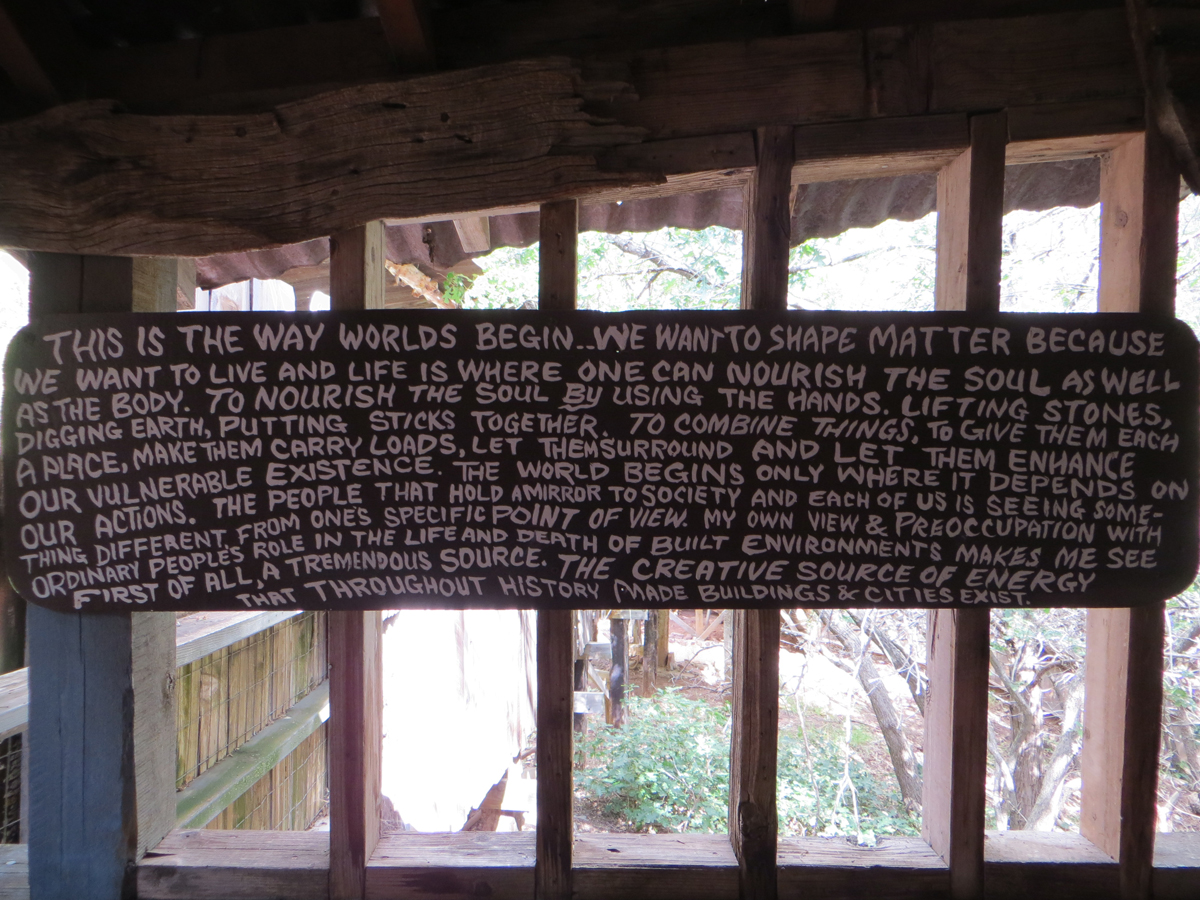 THIS IS THE WAY WORLDS BEGIN..WE WANT TO SHAPE MATTER BECAUSE
WE WANT TO LIVE AND LIFE IS WHERE ONE CAN NOURISH THE SOUL AS WELL
AS THE BODY. TO NOURISH THE SOUL BY USING THE HANDS. LIFTING STONES,
DIGGING EARTH, PUTTING STICKS TOGETHER. TO COMBINE THINGS, TO GIVE THEM EACH
A PLACE, MAKE THEM CARRY LOADS, LET THEM SURROUND AND LET THEM ENHANCE
OUR VULNERABLE EXISTENCE. THE WORLD BEGINS ONLY WHERE IT DEPENDS ON
OUR ACTIONS. THE PEOPLE THAT HOLD A MIRROR TO SOCIETY AND EACH OF US IS SEEING SOME-
THING DIFFERENT FROM ONE'S SPECIFIC POINT OF VIEW. MY OWN VIEW & PREOCCUPATION WITH
ORDINARY PEOPLE'S ROLE IN THE LIFE AND DEATH OF BUILT ENVIRONMENTS MAKES ME SEE
FIRST OF ALL, A TREMENDOUS SOURCE. THE CREATIVE SOURCE OF ENERGY
THAT THROUGHOUT HISTORY MADE BUILDINGS & CITIES EXIST.